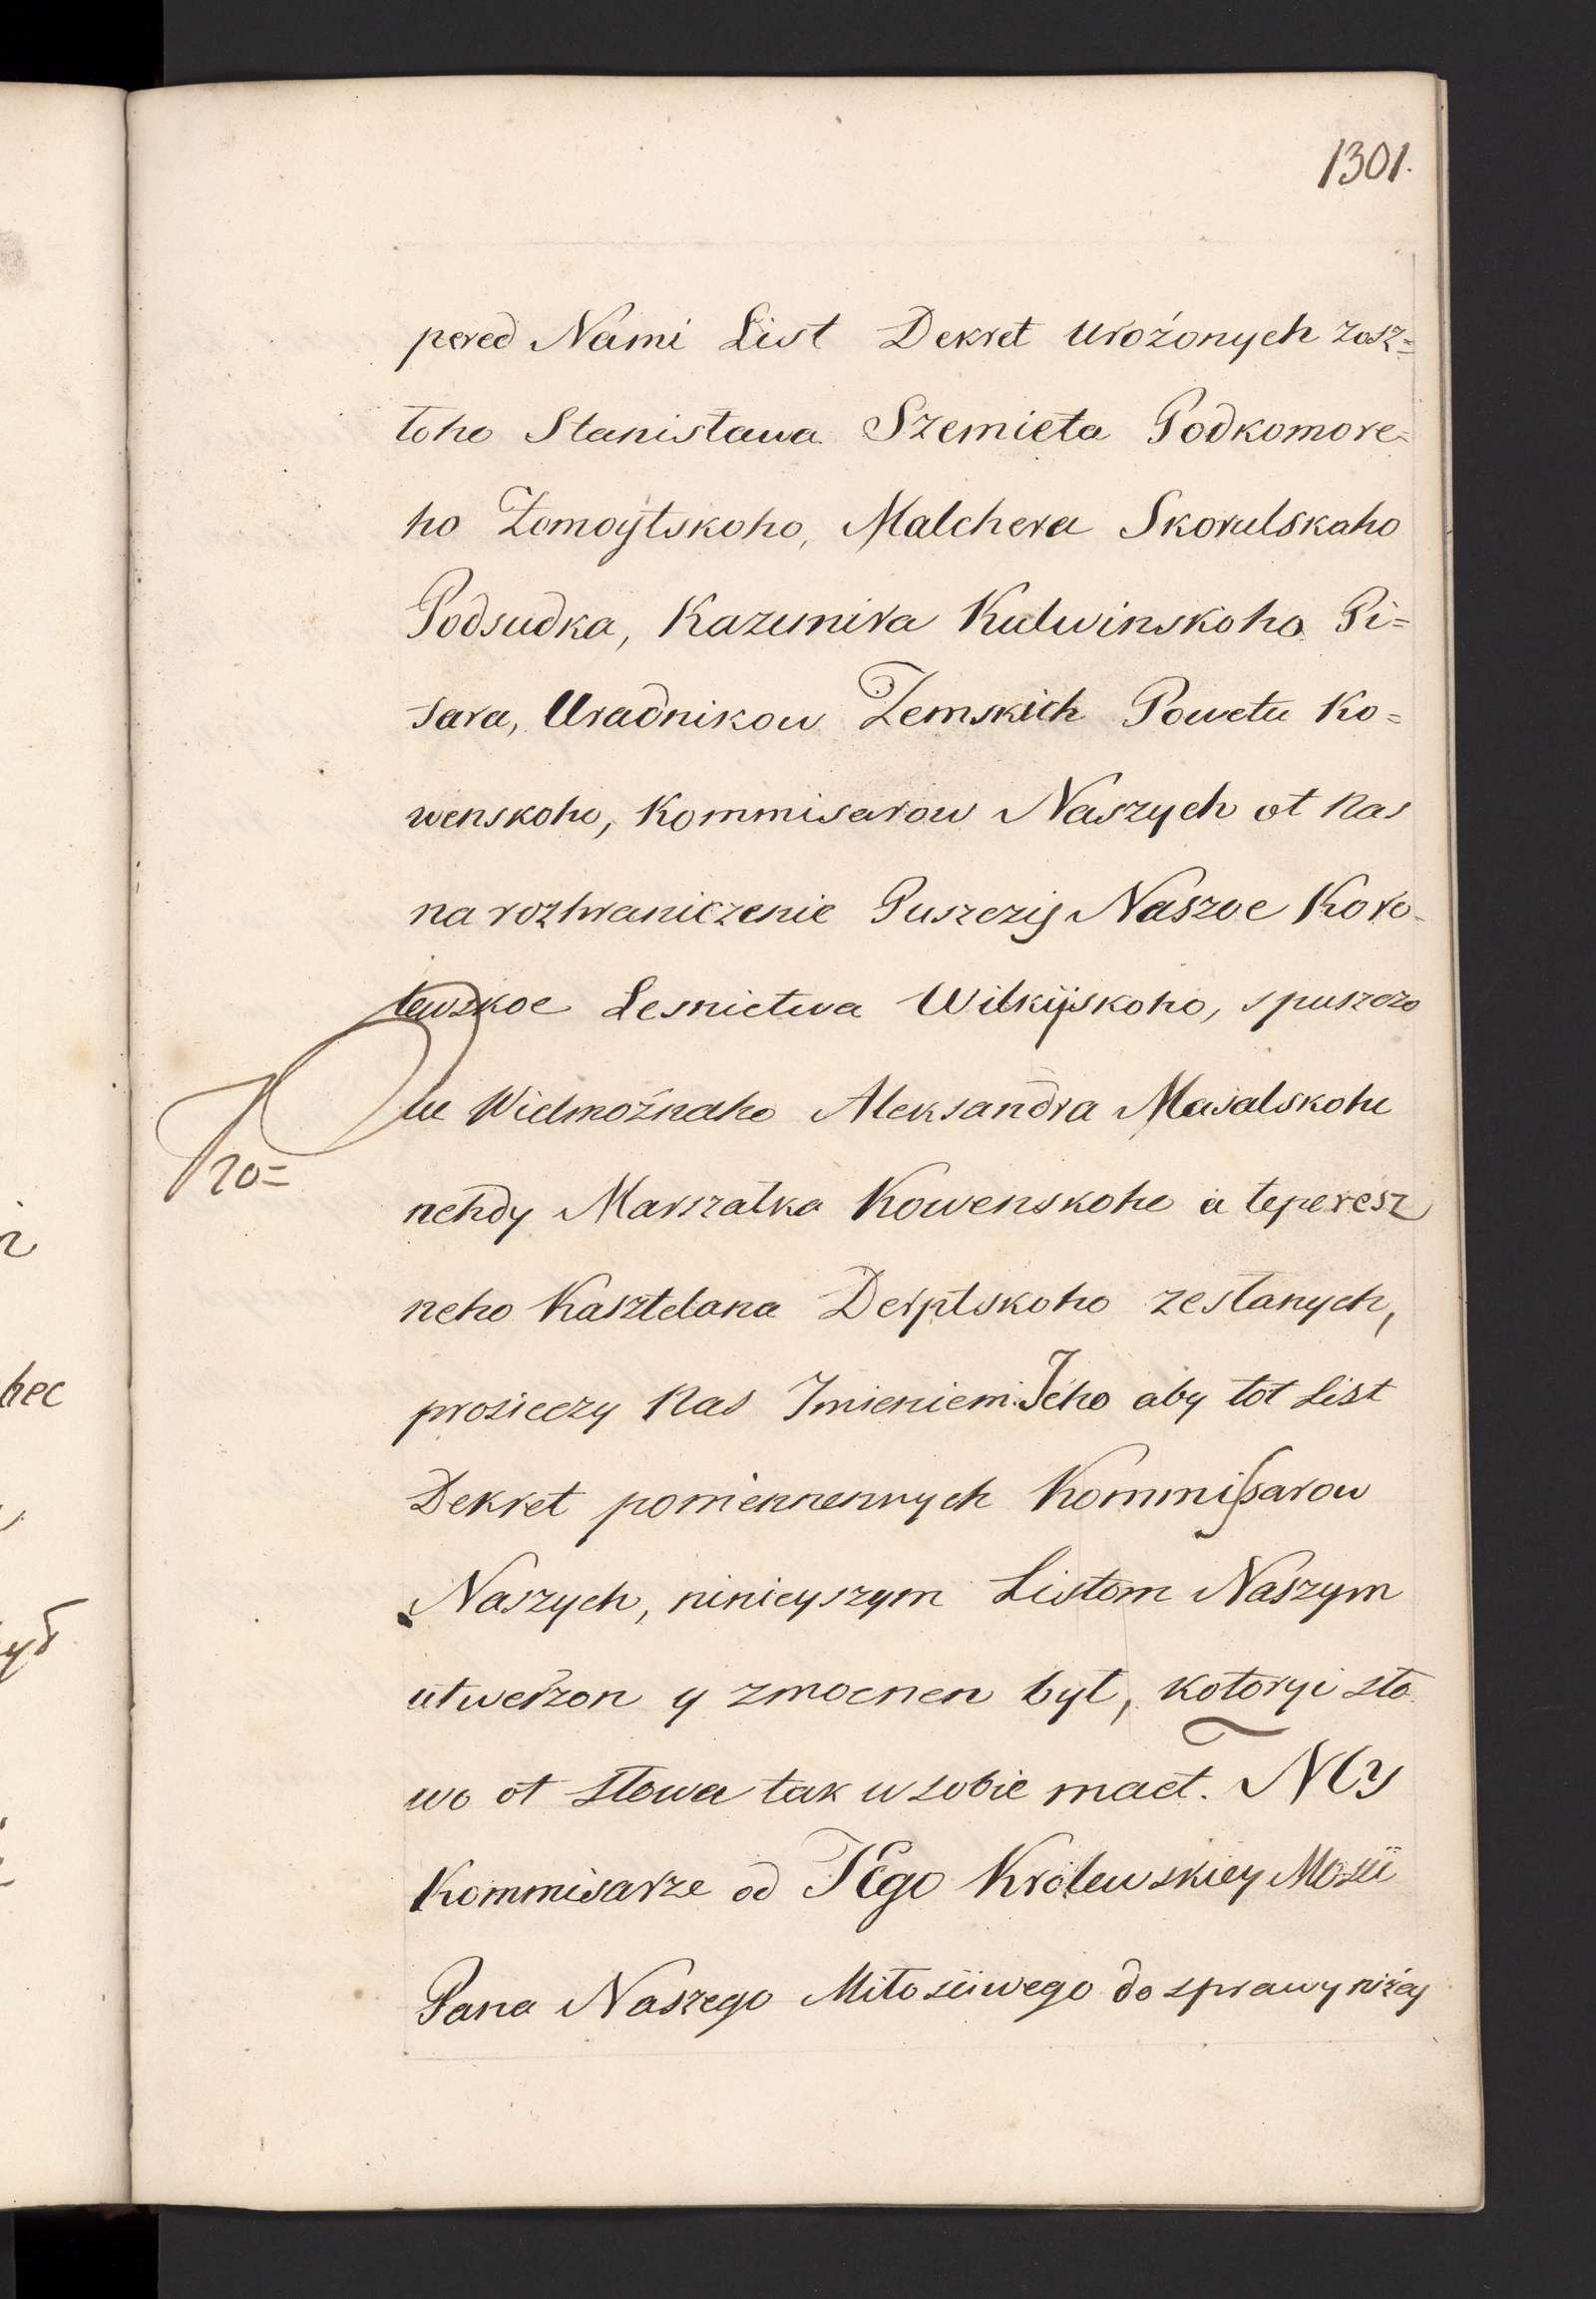 1301.
pered Nami List Dekret Urożonych zosz=
łoho Stanisława Szemieta Podkomore=
ho Zomoytskoho, Malchera Skorulskaho
Podsudka, Kazimira Kulwinskoho Pi=
sara, Uradnikow Zemskich Powetu Ko=
wenskoho, Kommisarow Naszych ot Nas
na rozhraniczenie Puszczy Naszoe Koro-
lewskoe Lesnictwa Wilkijskoho, s puszczo
lu Wielmożnaho Aleksandra Masalskoho
nehdy Marszałka Kowenskoho a teperesz
neho Kasztelana Derptskoho zesłanych,
prosieczy Nas Imieniem Jeho aby tot List
Dekret pomiennennych Kommissarow
Naszych, ninieyszym Listom Naszym
utwerżon y zmocnen był, kotoryi sło
wo ot słowa tak w sobie maet. My
Kommisarze od JEgo Krolewskiey Mości
Pana Naszego Miłościwego do sprawy niżey